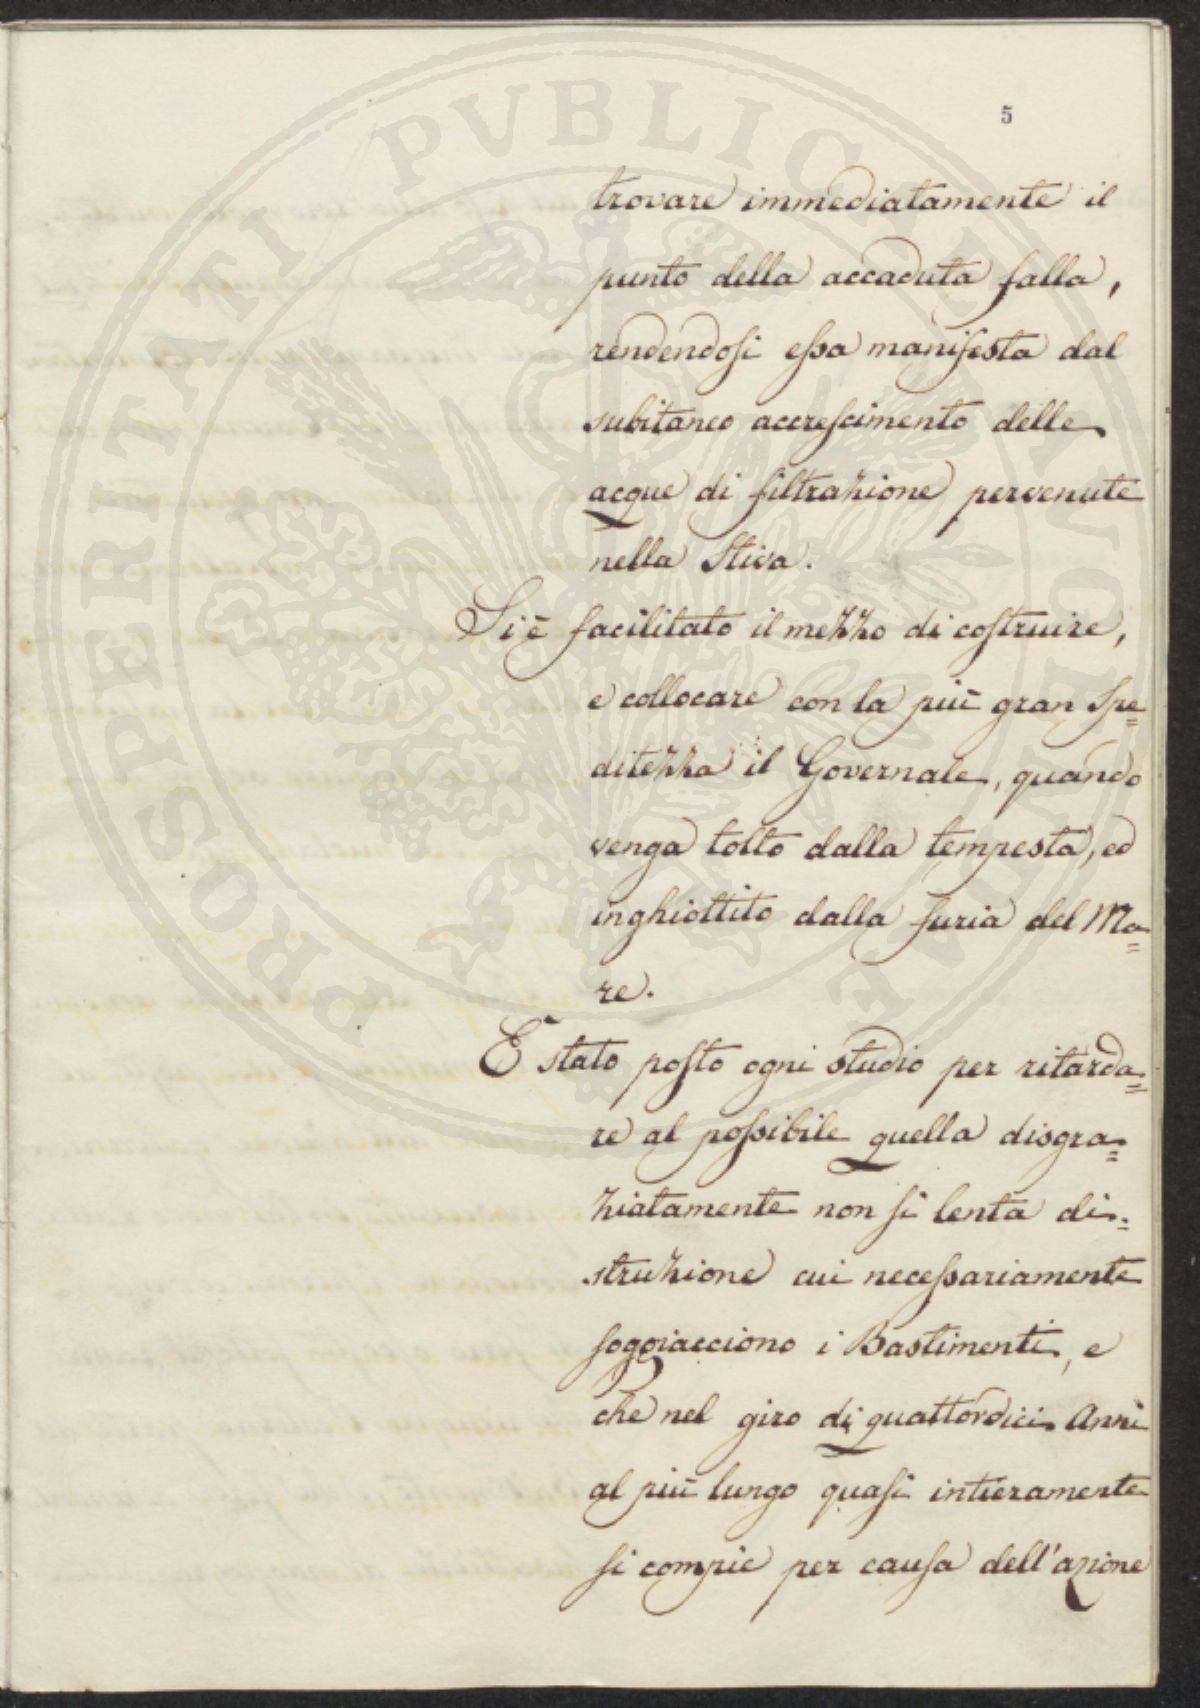 5
trovare immediatamente il
punto della accaduta falla,
rendendosi essa manifesta dal
subitaneo accrescimento delle
acque di filtrazione pervenute
nella Stiva.
Si è facilitato il mezzo di costruire,
e collocare con la più gran Spe=
ditezza il Governale, quando
venga tolto dalla tempesta, ed
inghiottito dalla furia del Ma=
re.
E' stato posto ogni studio per ritarda=
re al possibile quella disgra=
ziatamente non si lenta di=
struzione cui necessariamente
soggiacciono i Bastimenti, e
che nel giro di quattordici Anni
al più lungo quasi intieramente
si compie per causa dell'azione
PROSPERITATI PVBLICAE